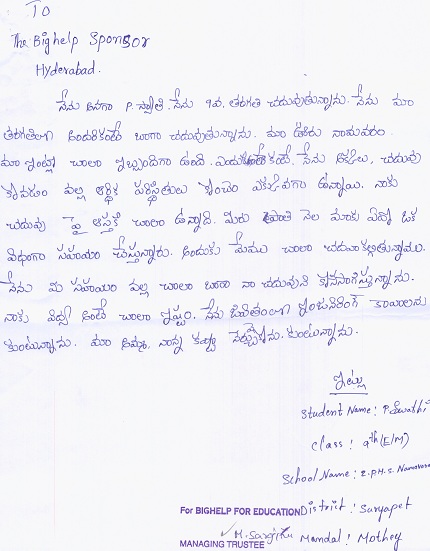 To
The Bighelp Sponsor
Hyderabad.
నేను అనగా P. స్వాతి. నేను 9వ. తరగతి చదువుతున్నాను. నేను మా
తరగతిలో అందరికంటే బాగా చదువుతున్నాను. మా ఊరు నామవరం.
మా ఇంట్లో చాలా ఇబ్బందిగా ఉంది. ఎందుకంటే నేను అక్కలు, చదువు
వల్ల ఆర్థిక పరిస్థితులు కొంచెం ఎక్కువగా ఉన్నాయి. నాకు
చదువు పై ఆసక్తి చాలా ఉన్నాది. మీరు ప్రతి నెల మాకు ఏదో ఒక
విధంగా సహాయం చేస్తున్నారు. అందుకు మేము చాలా చదువగల్గుతున్నాము.
నేను మీ సహాయం వల్ల చాలా బాగా నా చదువుని కొనసాగిస్తున్నాను.
నాకు విద్య అంటే చాలా ఇష్టం. నేను జీవితంలో ఇంజనీరింగ్ కావాలను
కుంటున్నాను. మా అమ్మ, నాన్న కష్టా నేర్చుకోను. కుంటున్నాను.
ఇట్లు
Student Name: P. Swathi
Class: 9th (E/M)
School Name: Z.P.H.S. Namavaram
For BIGHELP FOR EDUCATION District: Suryapet
Mandal: Mothey
MANAGING TRUSTEE